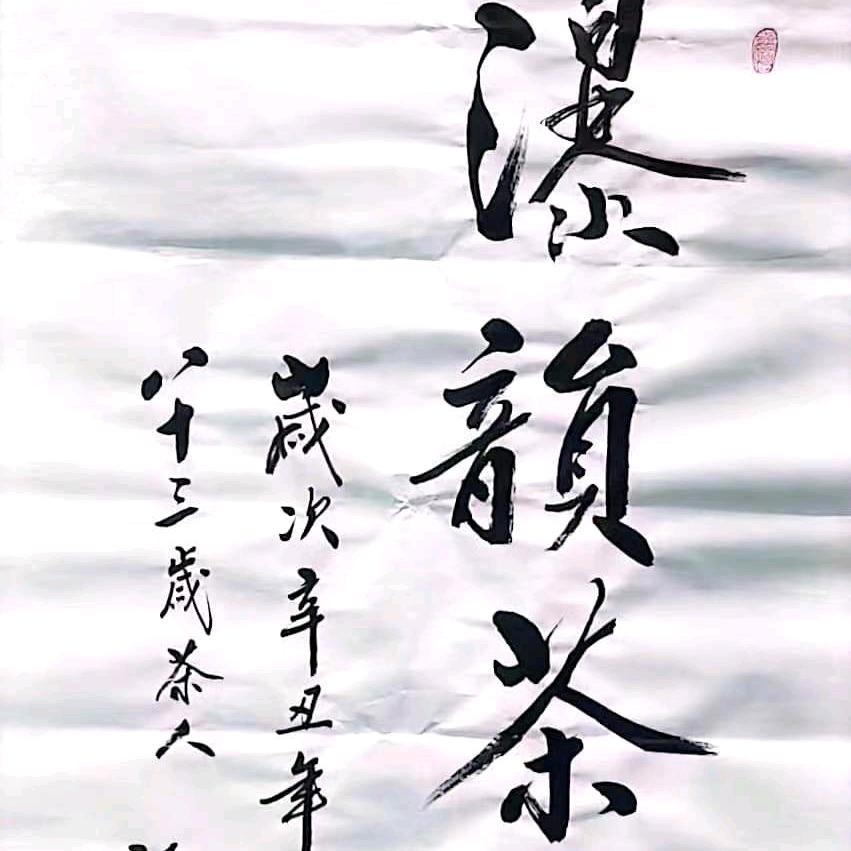 瀑韻茶
歲次辛丑年
八十三歲茶人